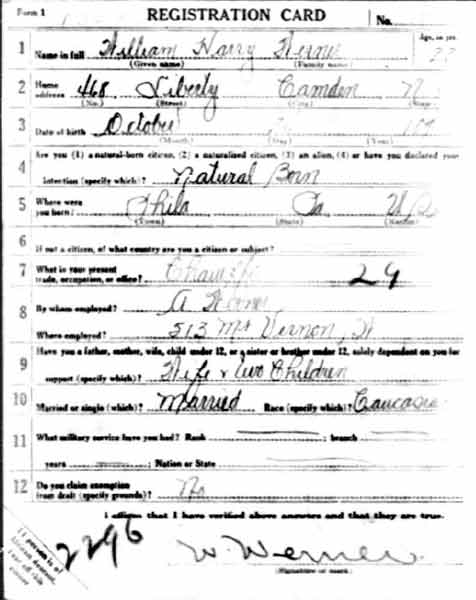 Form 1
REGISTRATION CARD No.
1 Name in full William Harry Werner Age, in yrs.
(Given name) (Family name)
2 Home address 468 Liberty Camden N
(No.) (Street) (City) (State)
3 Date of birth October
(Month) (Day) (Year)
4 Are you (1) a natural-born citizen, (2) a naturalized citizen, (3) an alien, (4) or have you declared your
intention (specify which)? Natural Born
5 Where were you born? Phila Pa
(Town) (State) (Nation)
6 If not a citizen, of what country are you a citizen or subject?
7 What is your present trade, occupation, or office? 29
8 By whom employed? A Werner
Where employed? 513 Mt Vernon
9 Have you a father, mother, wife, child under 12, or a sister or brother under 12, solely dependent on you for
support (specify which)? Wife & two Children
10 Married or single (which)? Married Race (specify which)? Caucasia
11 What military service have you had? Rank ; branch
years ; Nation or State
12 Do you claim exemption from draft (specify grounds)? No
I affirm that I have verified above answers and that they are true.
2296
W. Werner
(Signature or mark)